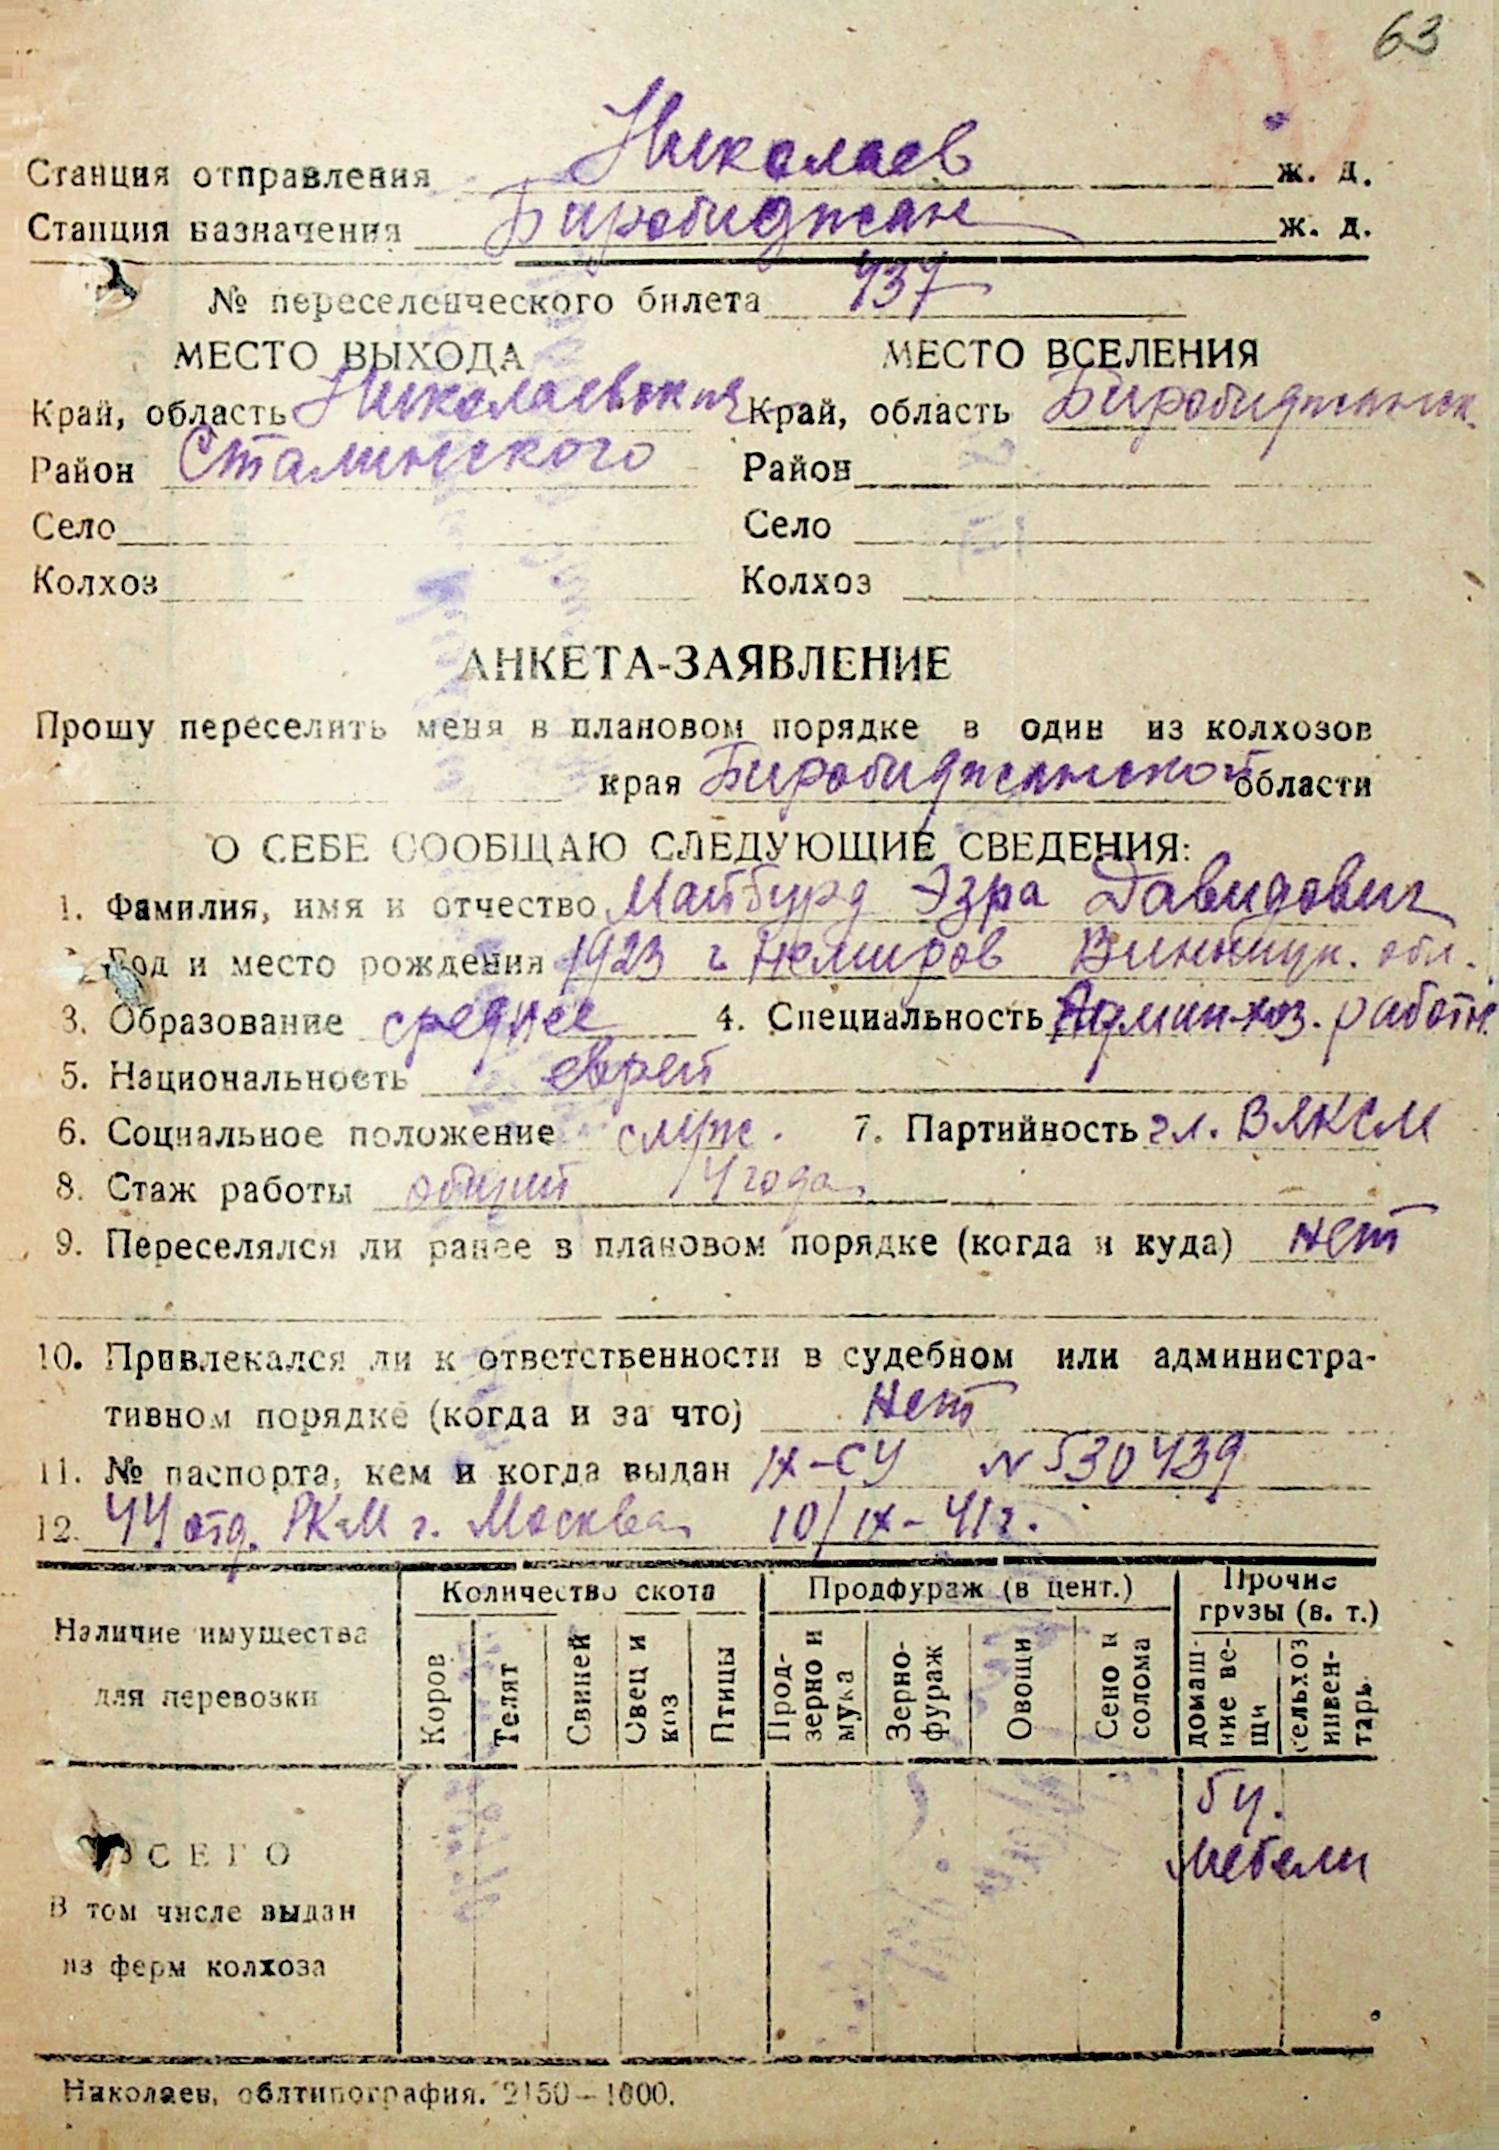 63
Станция отправления Николаев ж. д.
Станция назначения Биробиджан ж. д.
№ переселенческого билета 437
МЕСТО ВЫХОДА МЕСТО ВСЕЛЕНИЯ
Край, область Николаевская Край, область Биробиджанск.
Район Сталинского Район
Село Село
Колхоз Колхоз
АНКЕТА-ЗАЯВЛЕНИЕ
Прошу переселить меня в плановом порядке в один из колхозов
края Биробиджанской области
О СЕБЕ СООБЩАЮ СЛЕДУЮЩИЕ СВЕДЕНИЯ:
1. Фамилия, имя и отчество Майбурд Эзра Давидович
Год и место рождения 1923 г. Немиров Винницк. обл.
3. Образование среднее 4. Специальность Админ-хоз. работн.
5. Национальность еврей
6. Социальное положение служ. 7. Партийность чл. ВЛКСМ
8. Стаж работы общий 4 года
9. Переселялся ли ранее в плановом порядке (когда и куда) нет
10. Привлекался ли к ответственности в судебном или администра-
тивном порядке (когда и за что) нет
11. № паспорта, кем и когда выдан IX-СУ N 530439
12. 44 отд. РКМ г. Москва 10/IX-41г.
Наличие имущества для перевозки
Количество скота Продфураж (в цент.) Прочие грузы (в. т.)
Коров Телят Свиней Овец и коз Птицы Прод-зерно и мука Зерно-фураж Овощи Сено и солома домаш-ние ве-щи сельхоз инвен-тарь
5 ц.
мебели
ВСЕГО
В том числе выдан
из ферм колхоза
Николаев, облтипография. 2150—1000.